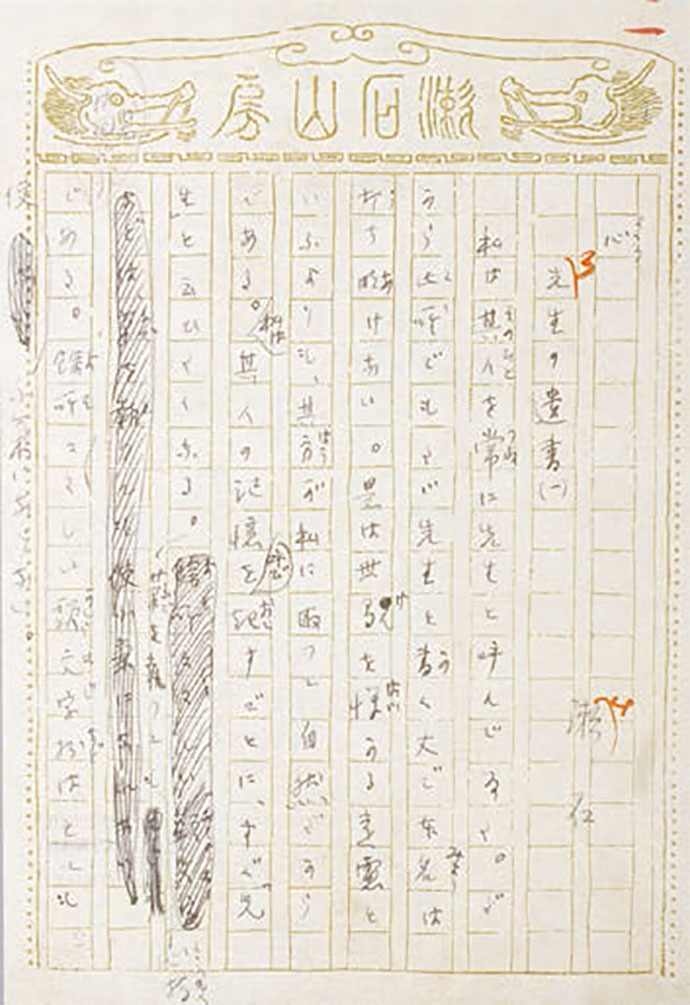 漱石山房
心
先生の遺書(一)
漱石
私は其人を常に先生と呼んでゐた。だ
から此所でもたゞ先生と書く丈で本名は
打ち明けない。是は世間を憚かる遠慮と
いふよりも、其方が私に取つて自然だから
である。私は其人の記憶を呼び起すごとに、すぐ「先
生」と云ひたくなる。
筆を執つても心持
である。余所々々しい頭文字抔はとても
使
気にならない。